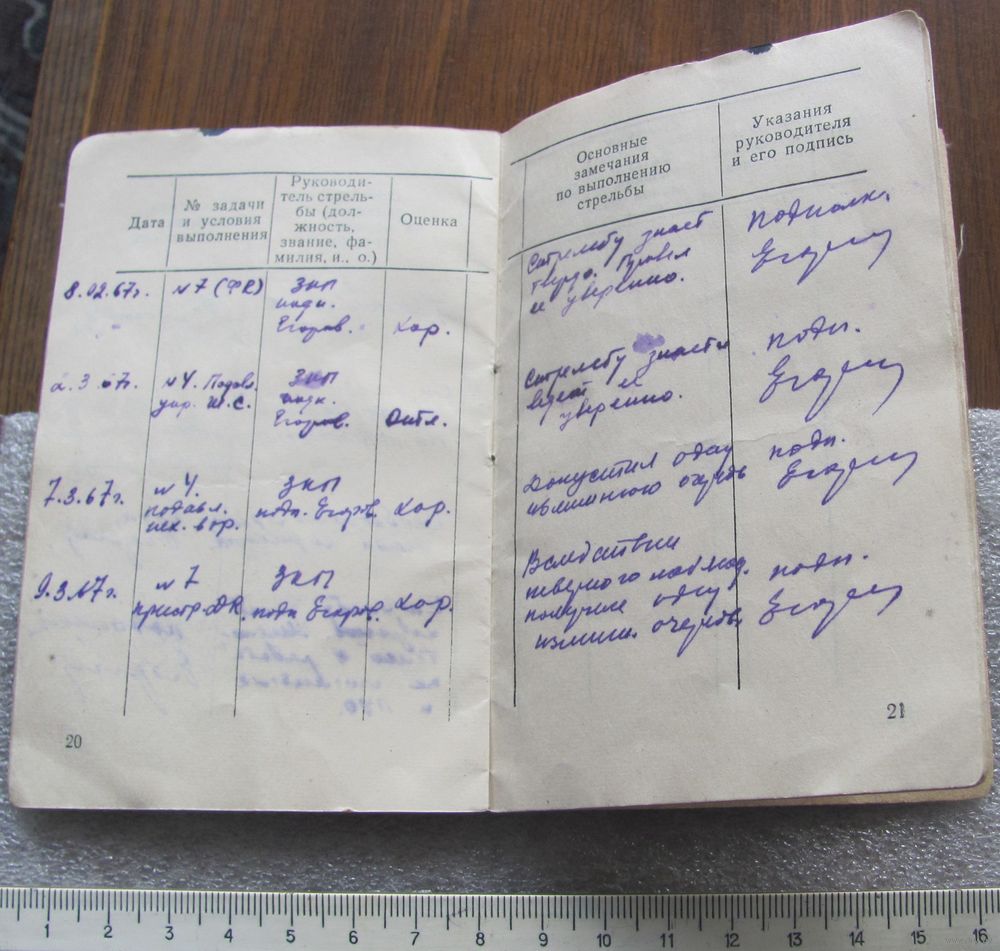 Дата
№ задачи
и условия
выполнения
Руководи-
тель стрель-
бы (дол-
жность,
звание, фа-
милия, и., о.)
Оценка
8.02.67г.
№7 (ФР)
ЗКП
подп.
Егоров.
Хор.
2.3.67г.
№4. Подавл.
ЗКП
подп.
Егоров.
Отл.
7.3.67г.
№4.
подавл.
ЗКП
подп. Егоров.
Хор.
9.3.67г.
№7
ЗКП
подп Егоров.
Хор.
20
Основные
замечания
по выполнению
стрельбы
Указания
руководителя
и его подпись
Стрельбу знает
твердо. Провел
ее уверенно.
подполк.
Егоров
Стрельбу знает и
ведет её
уверенно.
подп.
Егоров
Допустил одну
излишнюю очередь
подп.
Егоров
Вследствии
получил одну
излишн. очередь.
подп.
Егоров
21
1 2 3 4 5 6 7 8 9 10 11 12 13 14 15 16